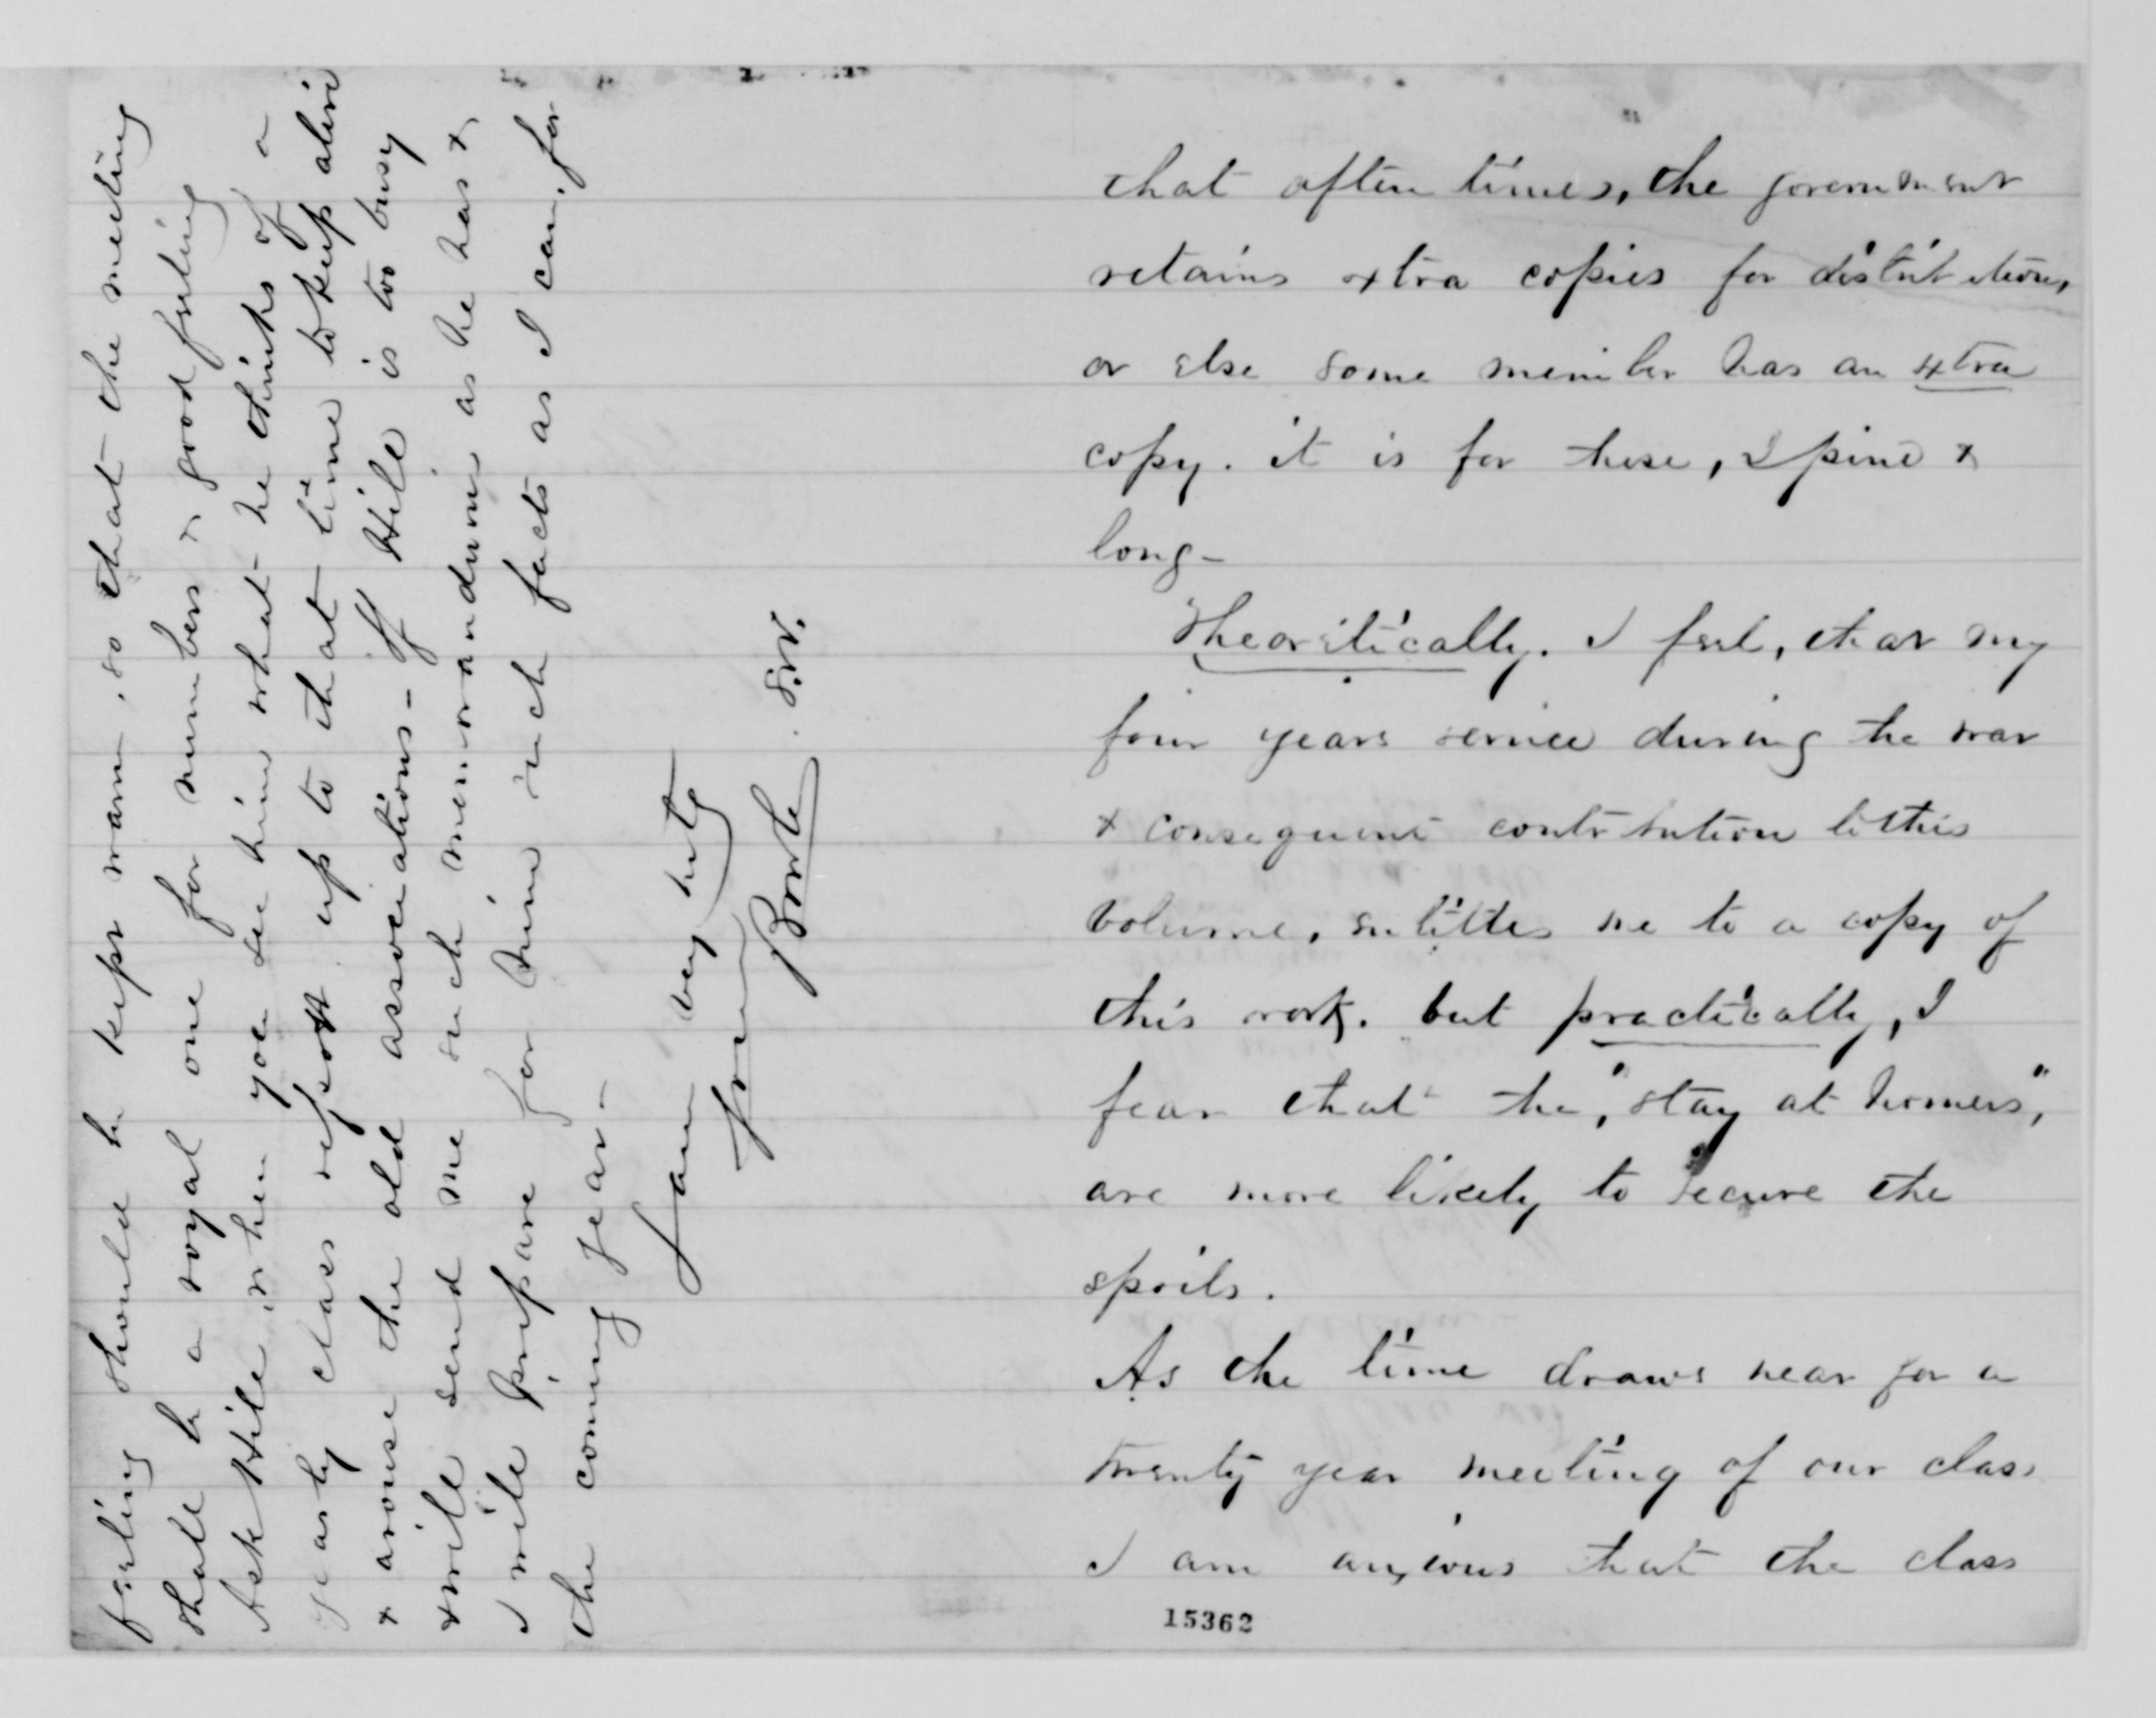 that often times, the government
retains extra copies for distribution,
or else some member has an extra
copy. it is for these, I pine &
long-
Theoritically. I feel, that my
four years service during the war
& consequent contribution to this
volume, entitles me to a copy of
this work. but practically, I
fear that the, "stay at homers",
are more likely to secure the
spoils.
As the time draws near for a
twenty year meeting of our class
I am anxious that the class
15362
feeling should be kept warm, so that the meeting
shall be a royal one for numbers & good feeling
Ask Hill, when you see him what he thinks of a
yearly class report up to that time to keep alive
& arouse the old associations- If Hill is too busy
& will send me such memorandum as he has &
I will prepare for him such facts as I can, for
the coming year-
I am very truly
yours
Bowle S.W.